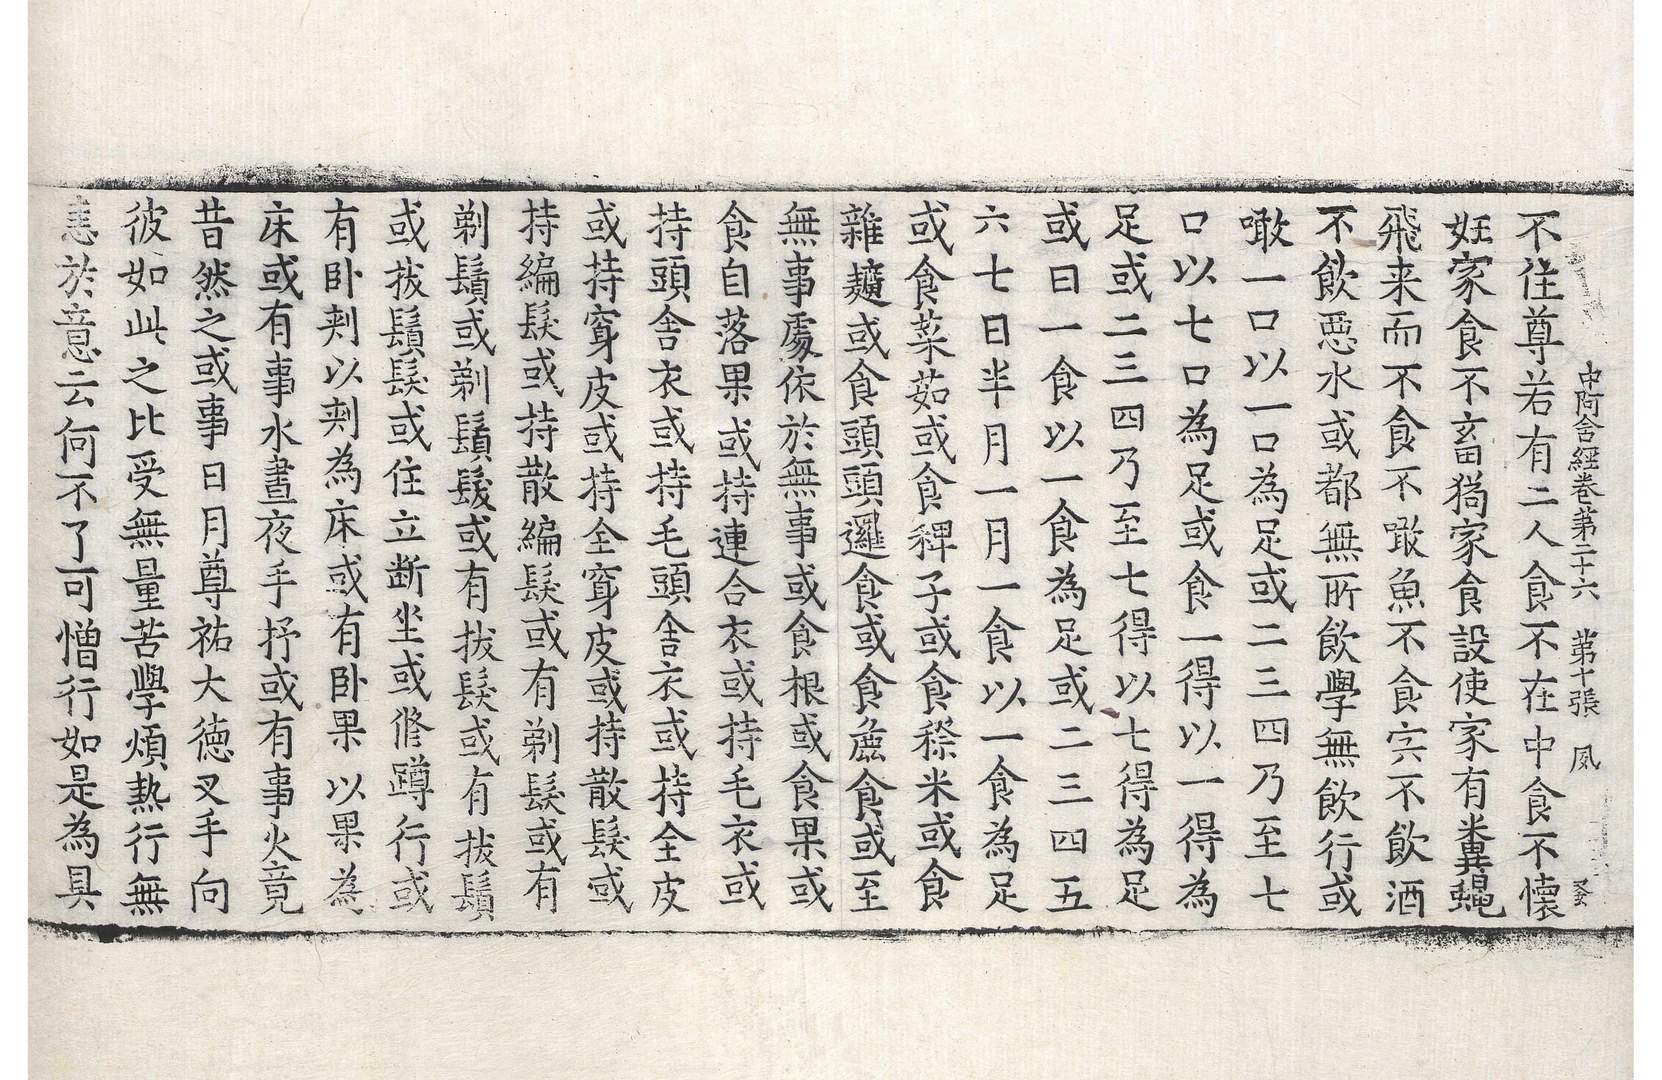 中阿含經卷第二十六　第十張　夙
不住尊若有二人食不在中食不懷
妊家食不畜猗家食設使家有糞蠅
飛来而不食不噉魚不食宍不飲酒
不飲惡水或都無所飲學無飲行或
噉一口以一口為足或二三四乃至七
口以七口為足或食一得以一得為
足或二三四乃至七得以七得為足
或日一食以一食為足或二三四五
六七日半月一月一食以一食為足
或食菜茹或食稗子或食穄米或食
雜𪍿或食頭頭邏食或食麁食或至
無事處依於無事或食根或食果或
食自落果或持連合衣或持毛衣或
持頭舍衣或持毛頭舍衣或持全皮
或持穿皮或持全穿皮或持散髮或
持編髮或持散編髮或有剃髮或有
剃鬚或剃鬚髮或有拔髮或有拔鬚
或拔鬚髮或住立断坐或修蹲行或
有卧刾以刾為床或有卧果以果為
床或有事水晝夜手抒或有事火竟
昔然之或事日月尊祐大德叉手向
彼如此之比受無量苦學煩熱行無
恚於意云何不了可憎行如是為具